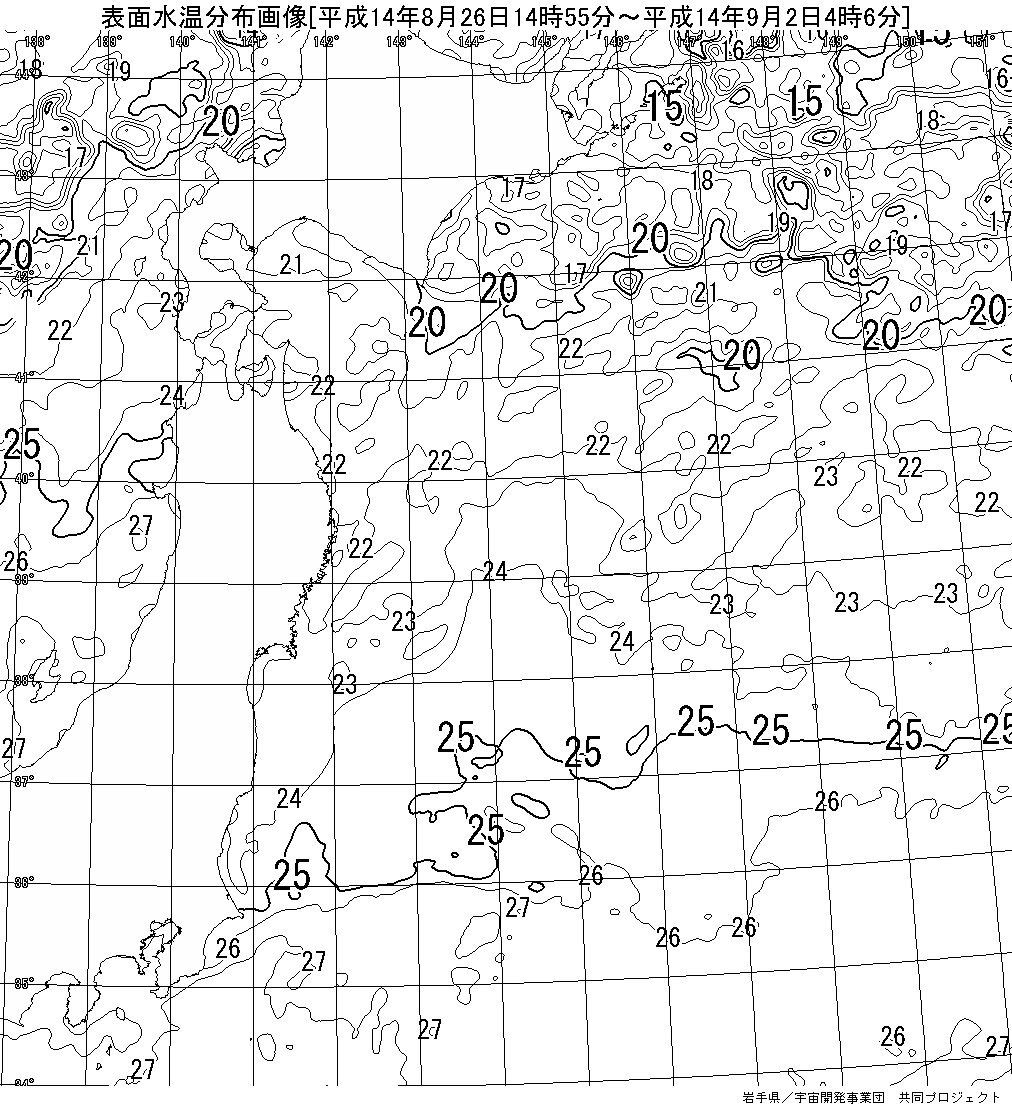 表面水温分布画像[平成14年8月26日14時55分～平成14年9月2日4時6分]
138° 139° 140° 141° 142° 143° 144° 145° 146° 147° 148° 149° 150° 151°
16 15
44° 18 19 16
20 15 15 18
17
43° 17 18
20 21 21 20 19 19 17
42° 23 20 17 21
22 20 22 20 20 20
41° 24 22
25 22 22 22 22 23 22
40° 27 22
26 22 24
39° 23 23 23 23
24
38° 23
27 25 25 25 25 25 25
37° 24 26
25
36° 25 26
27
26 27 26 26
35°
27 26 27
34° 27
岩手県／宇宙開発事業団　共同プロジェクト